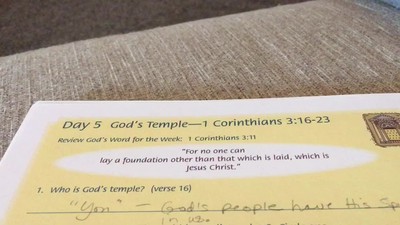 Day 5 God's Temple—1 Corinthians 3:16-23
Review God's Word for the Week: 1 Corinthians 3:11
"For no one can
lay a foundation other than that which is laid, which is
Jesus Christ."
1. Who is God's temple? (verse 16)
"You" - God's people have His Sp
in us.